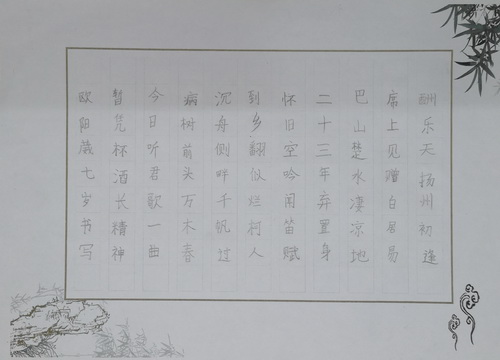 酬乐天扬州初逢
席上见赠白居易
巴山楚水凄凉地
二十三年弃置身
怀旧空吟闻笛赋
到乡翻似烂柯人
沉舟侧畔千帆过
病树前头万木春
今日听君歌一曲
暂凭杯酒长精神
欧阳葳七岁书写